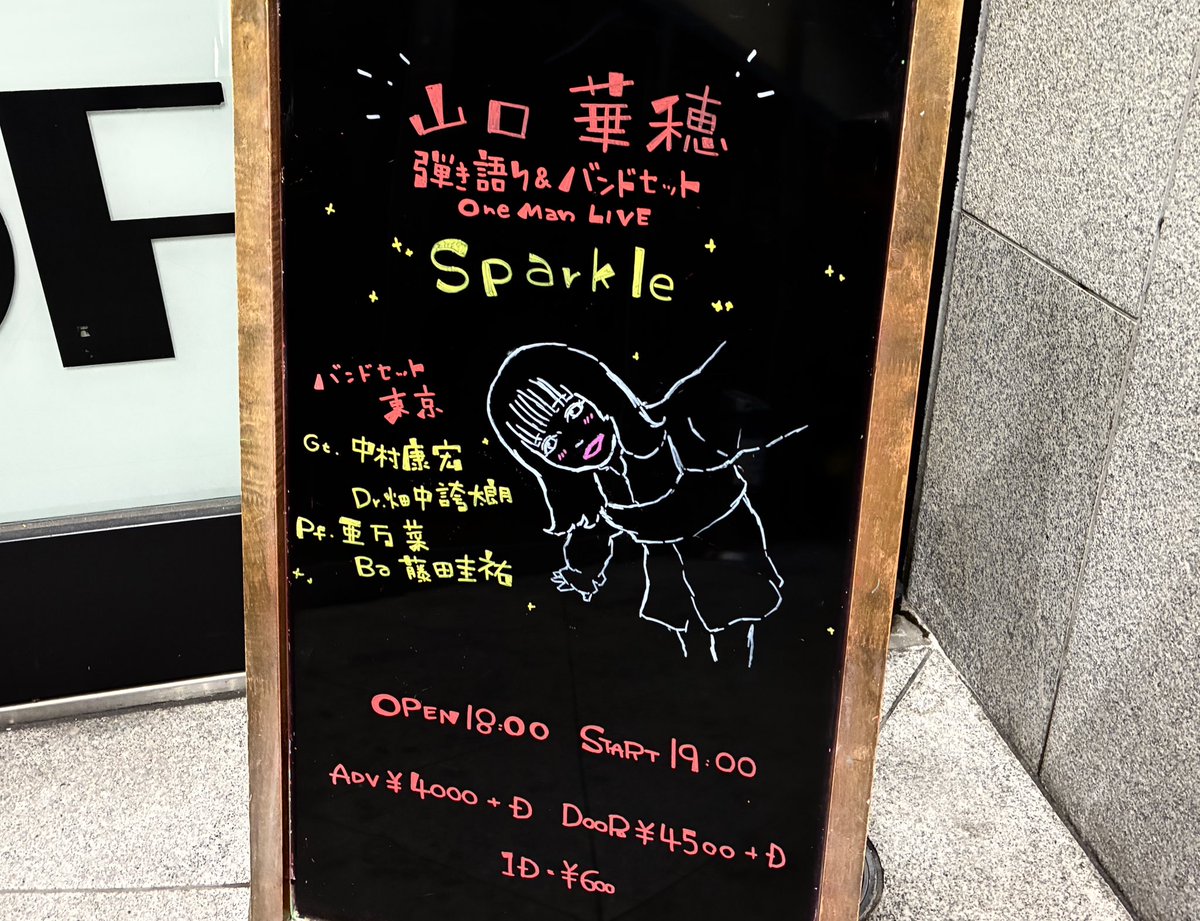 F
山口 華穂
弾き語り&バンドセット
One Man LIVE
Sparkle
バンドセット
東京
Gt. 中村康宏
Dr. 畑中誇太朗
Pf. 亜万菜
Ba 藤田圭祐
OPEN 18:00 START 19:00
ADV ¥4000+D DOOR ¥4500+D
1D・¥600